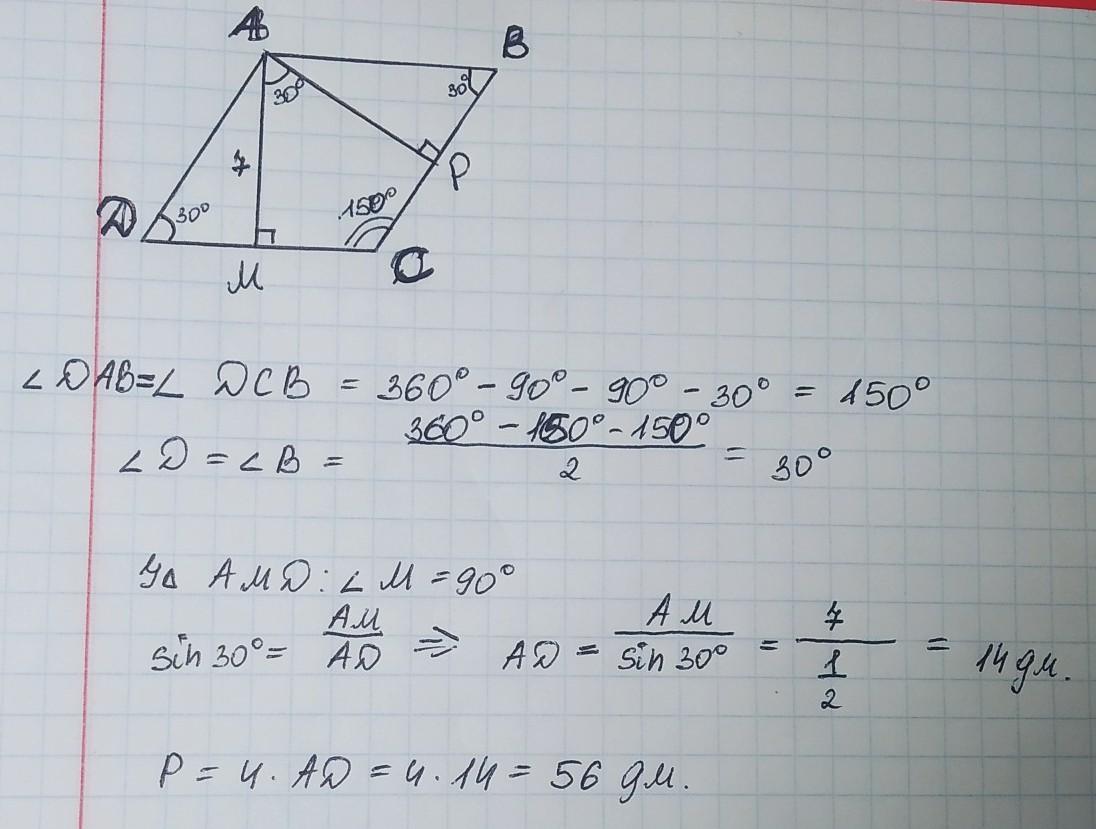 A
B
30°
30°
7
P
150°
D
30°
M
C
∠ DAB = ∠ DCB = 360° - 90° - 90° - 30° = 150°
∠ D = ∠ B = (360° - 150° - 150°) / 2 = 30°
У Δ AMD : ∠ M = 90°
sin 30° = AM / AD ⇒ AD = AM / sin 30° = 7 / (1 / 2) = 14 дм.
P = 4 · AD = 4 · 14 = 56 дм.